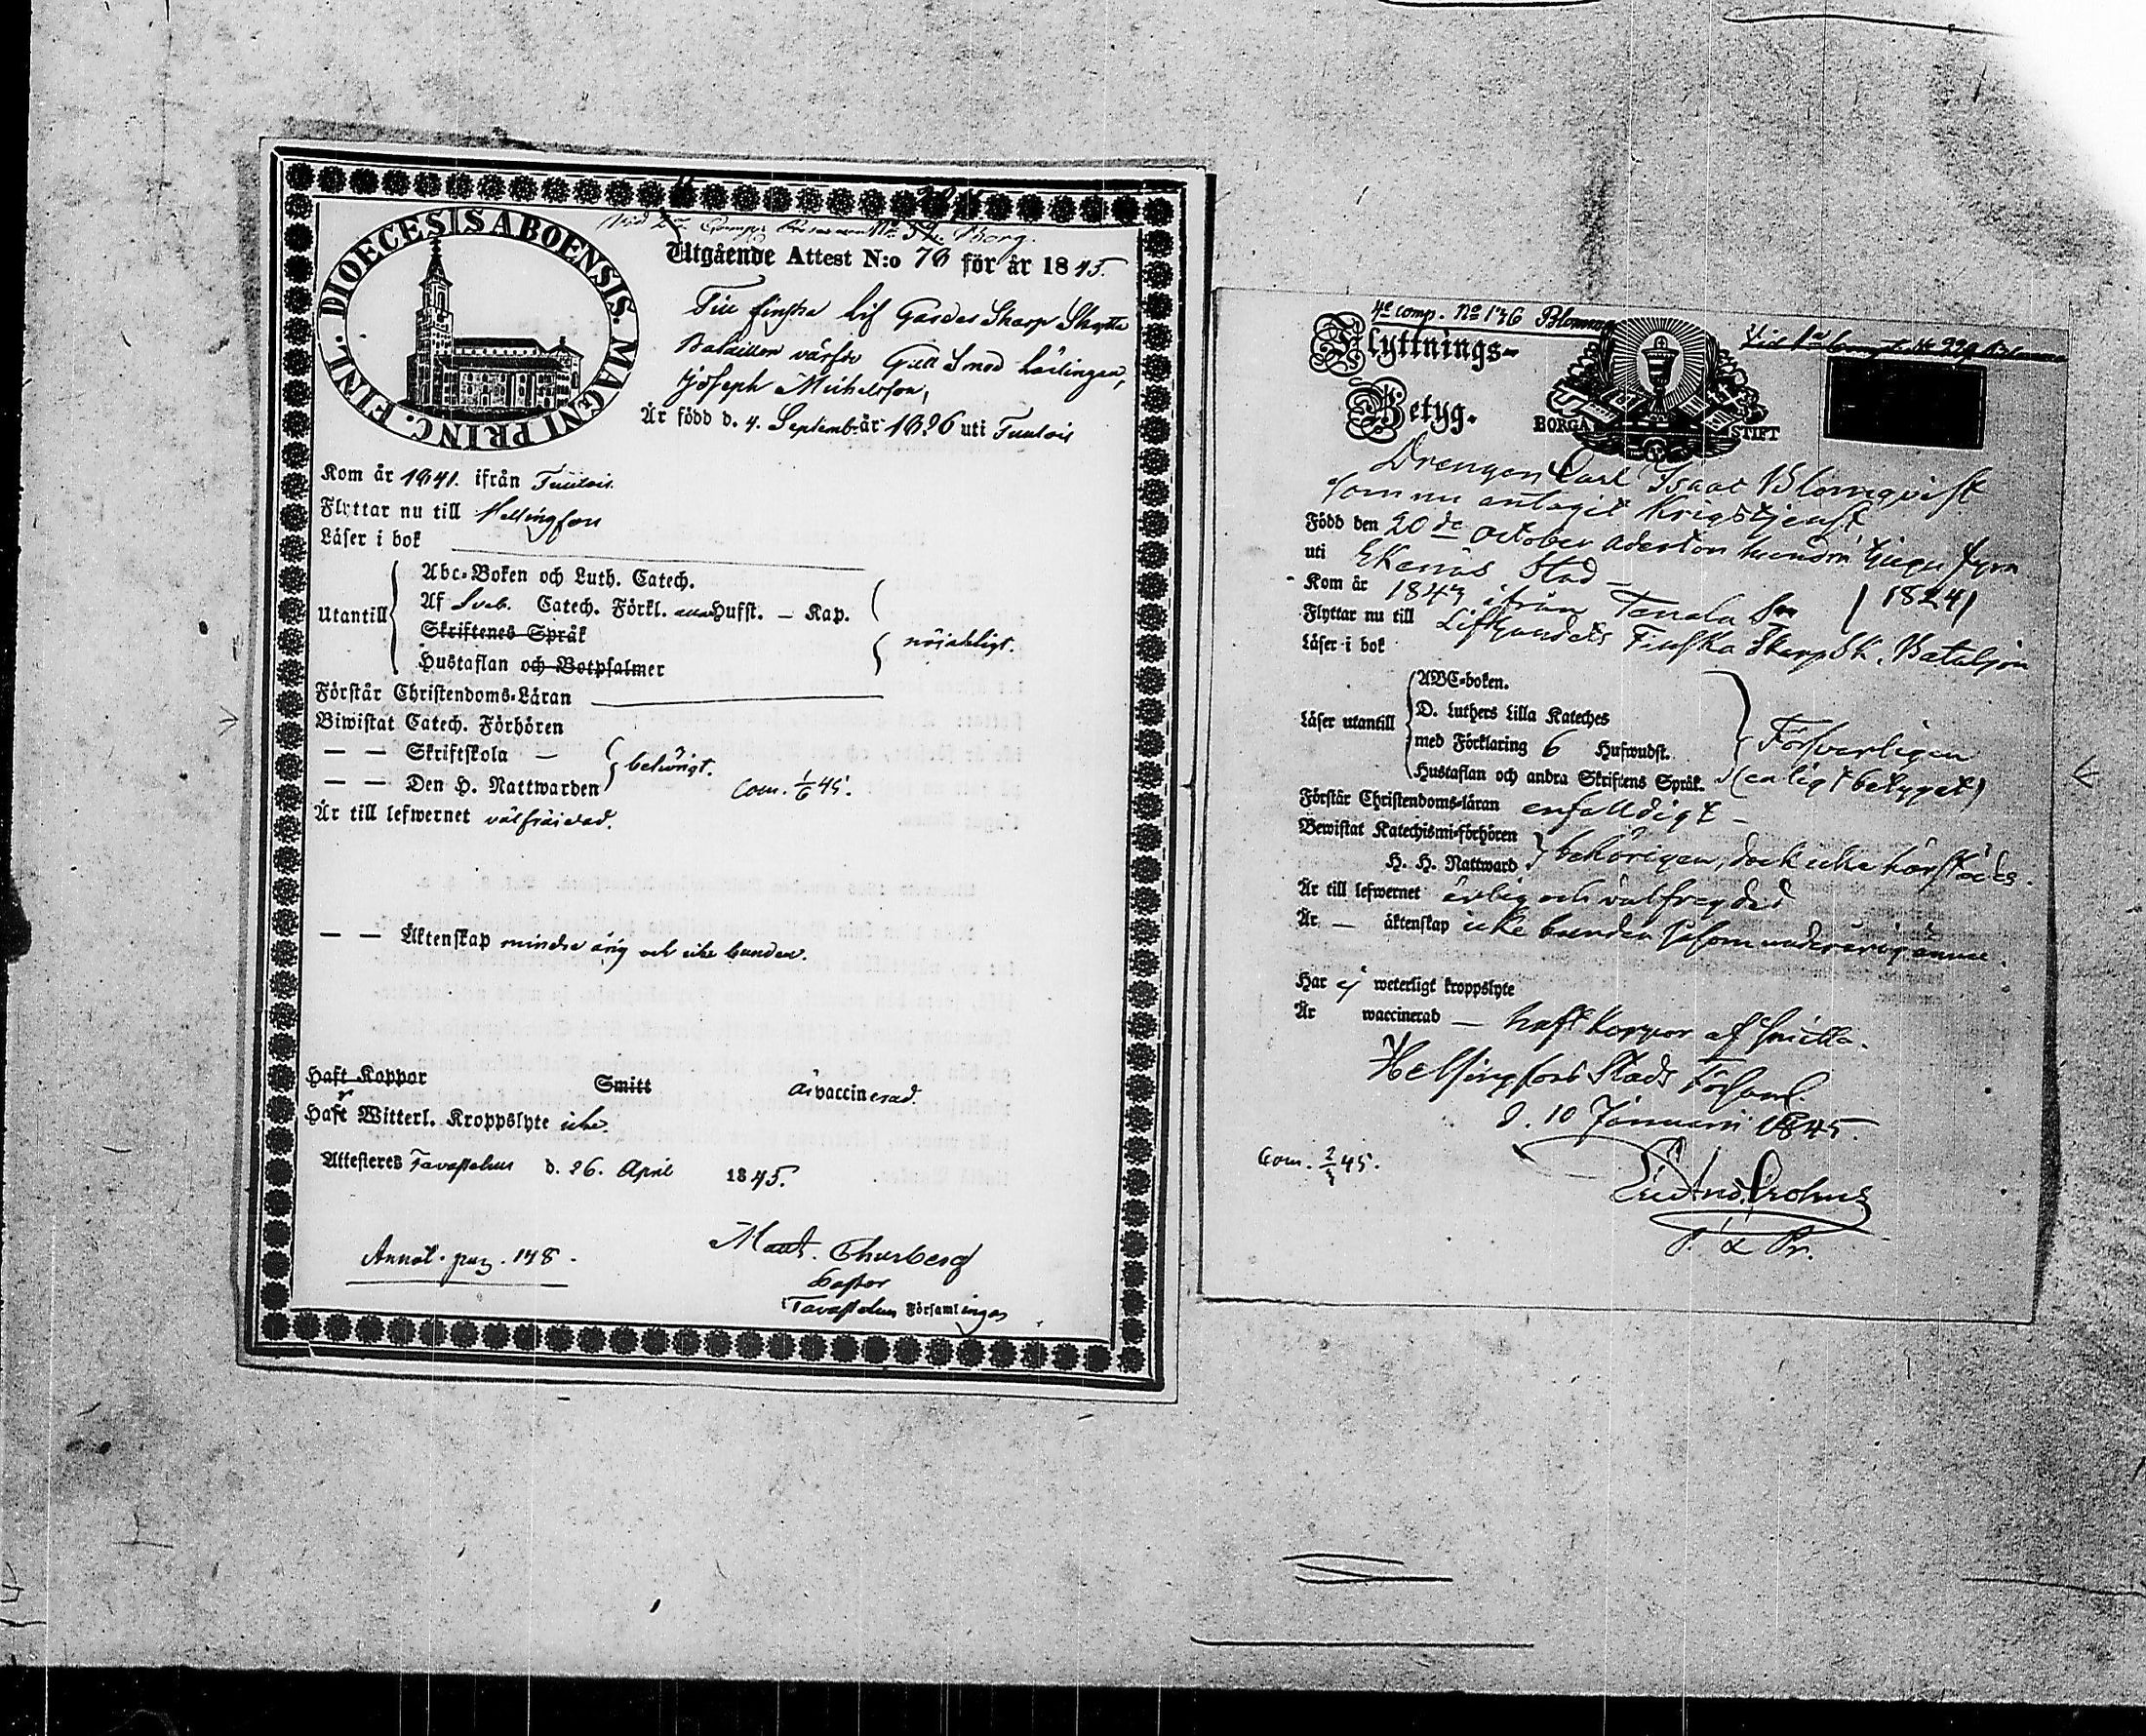 DIOECESIS ABOENSIS. MAGNI PRINC. FINL.
Utgående Attest N:o 76 för år 1845.
Till finska lif Gardes Skarp Skytte
Bataillon värfde Gull Smed lärlingen,
Joseph Michelsson,
Är född d. 4. Septemb. år 1826 uti Tuulois
Kom år 1841. ifrån Tuulois.
Flyttar nu till Helsingfors
Läser i bok
Utantill
Abc-Boken och Luth. Catech.
Af Sveb. Catech. Förkl. alla Hufst. — Kap.
Skriftenes Språk
Hustaflan och Botpsalmer
nöjaktigt.
Förstår Christendoms-Läran
Biwistat Catech. Förhören
— — Skriftskola —
— — Den H. Nattwarden
behörigt.
Com. 1/6 45.
Är till lefwernet välfräjdad.
— — Äktenskap mindre årig och icke bunden.
Haft Koppor Smitt är vaccinerad.
Haft Witterl. Kroppslyte icke.
Attesteres Tavastehus d. 26. April 1845.
Annot. pag. 148.
Maut. Thurberg
Pastor
Tavastehus Församlingar
4e comp. No 136 Blomm
Flyttnings-
Betyg.
BORGÅ STIFT
Drengen Carl Isaac Blomqvist
som nu antagit Krigstjenst
Född den 20de October aderton hundra tjugu fyra
uti Ekenäs Stad (1824)
Kom år 1843 ifrån Tenala Sn
Flyttar nu till Lifgardets Finska Skarp Sk. Bataljon
Läser i bok
Läser utantill
ABC-boken.
D. Luthers Lilla Kateches
med Förklaring 6 Hufwudst.
Hustaflan och andra Skriftens Språk.
Försvarligen
(enligt betyget)
Förstår Christendoms-läran enfaldigt —
Bewistat Katechismi-förhören
H. H. Nattward
behörigen, dock icke härstädes.
Är till lefwernet ärlig och välfregdad
Är — äktenskap icke bunden såsom underårig ännu.
Har ej weterligt kroppslyte
Är waccinerad — haft koppor af smitta.
Helsingfors Stads Förs​aml.
d. 10 Januarii 1845.
Com. 2/3 45.